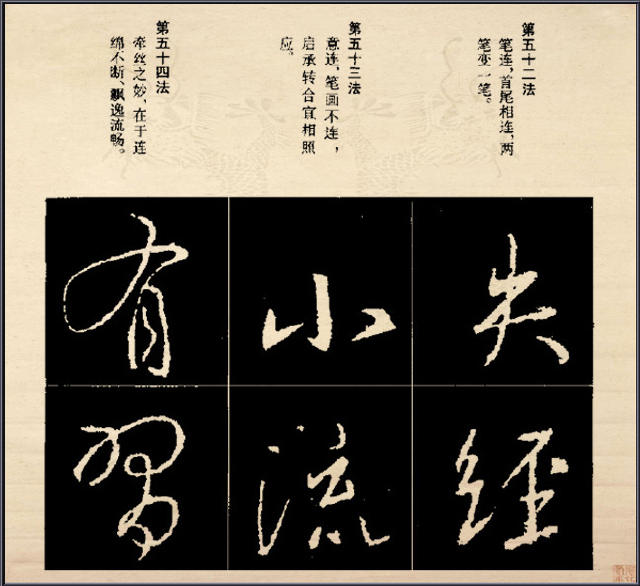 第五十二法
笔连，首尾相连，两
笔变一笔。
第五十三法
意连，笔画不连，
启承转合宜相照
应。
第五十四法
牵丝之妙，在于连
绵不断、飘逸流畅。
失
经
小
流
有
習